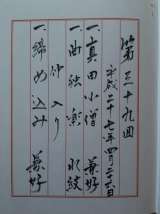 第三十九回
平成二十七年四月二十六日
一、真田小僧 兼好
一、曲独楽 水紋
仲入り
一、締め込み 兼好